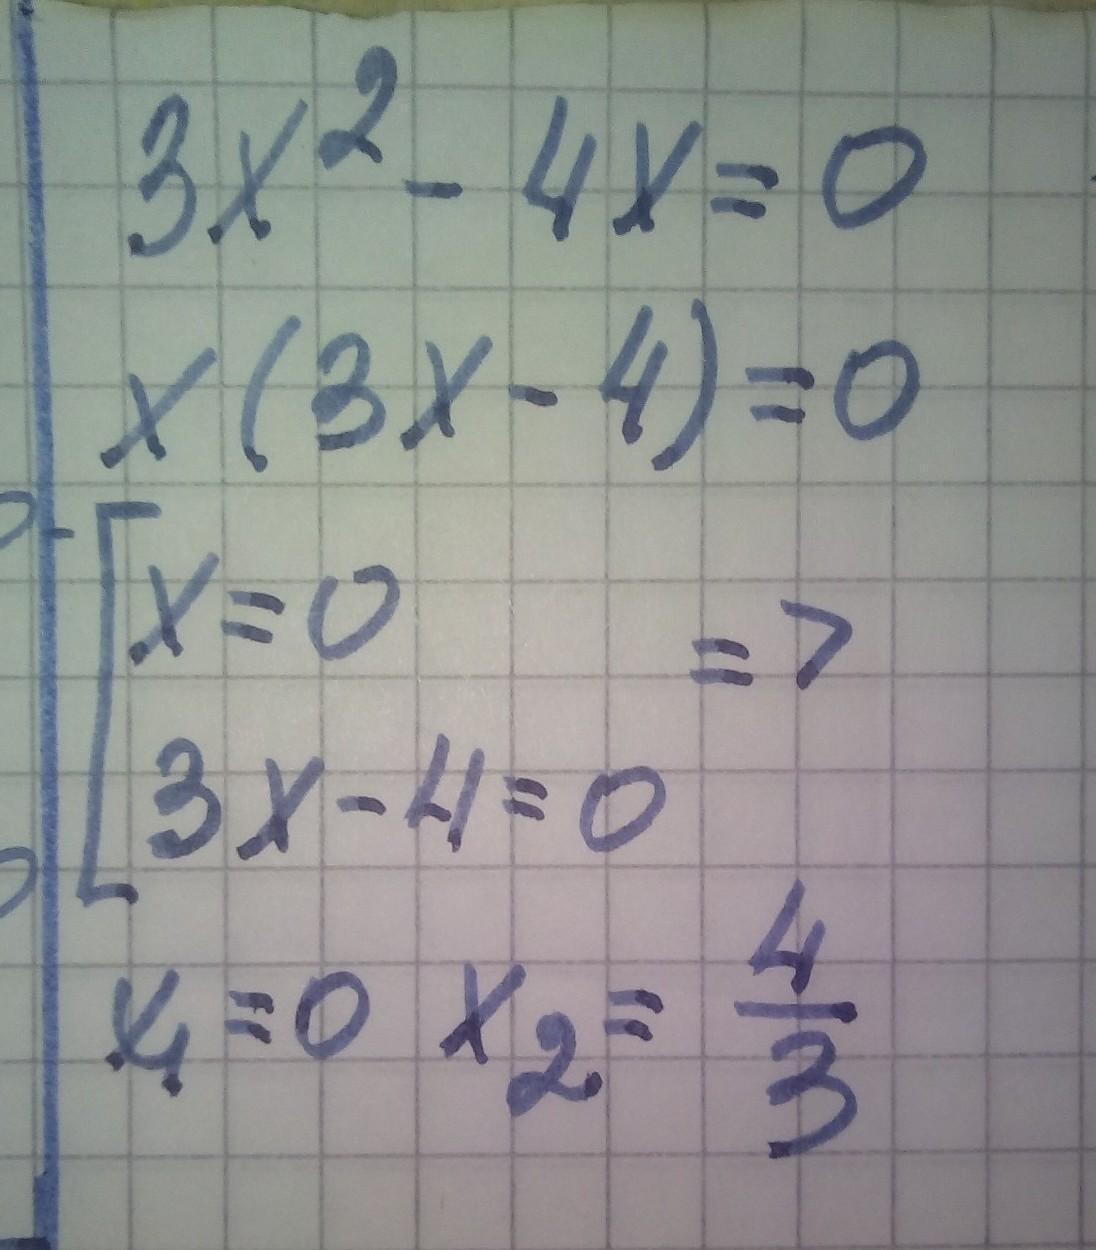 3x² - 4x = 0
x(3x - 4) = 0
[x = 0 =>
3x - 4 = 0
x₁ = 0 x₂ = 4/3